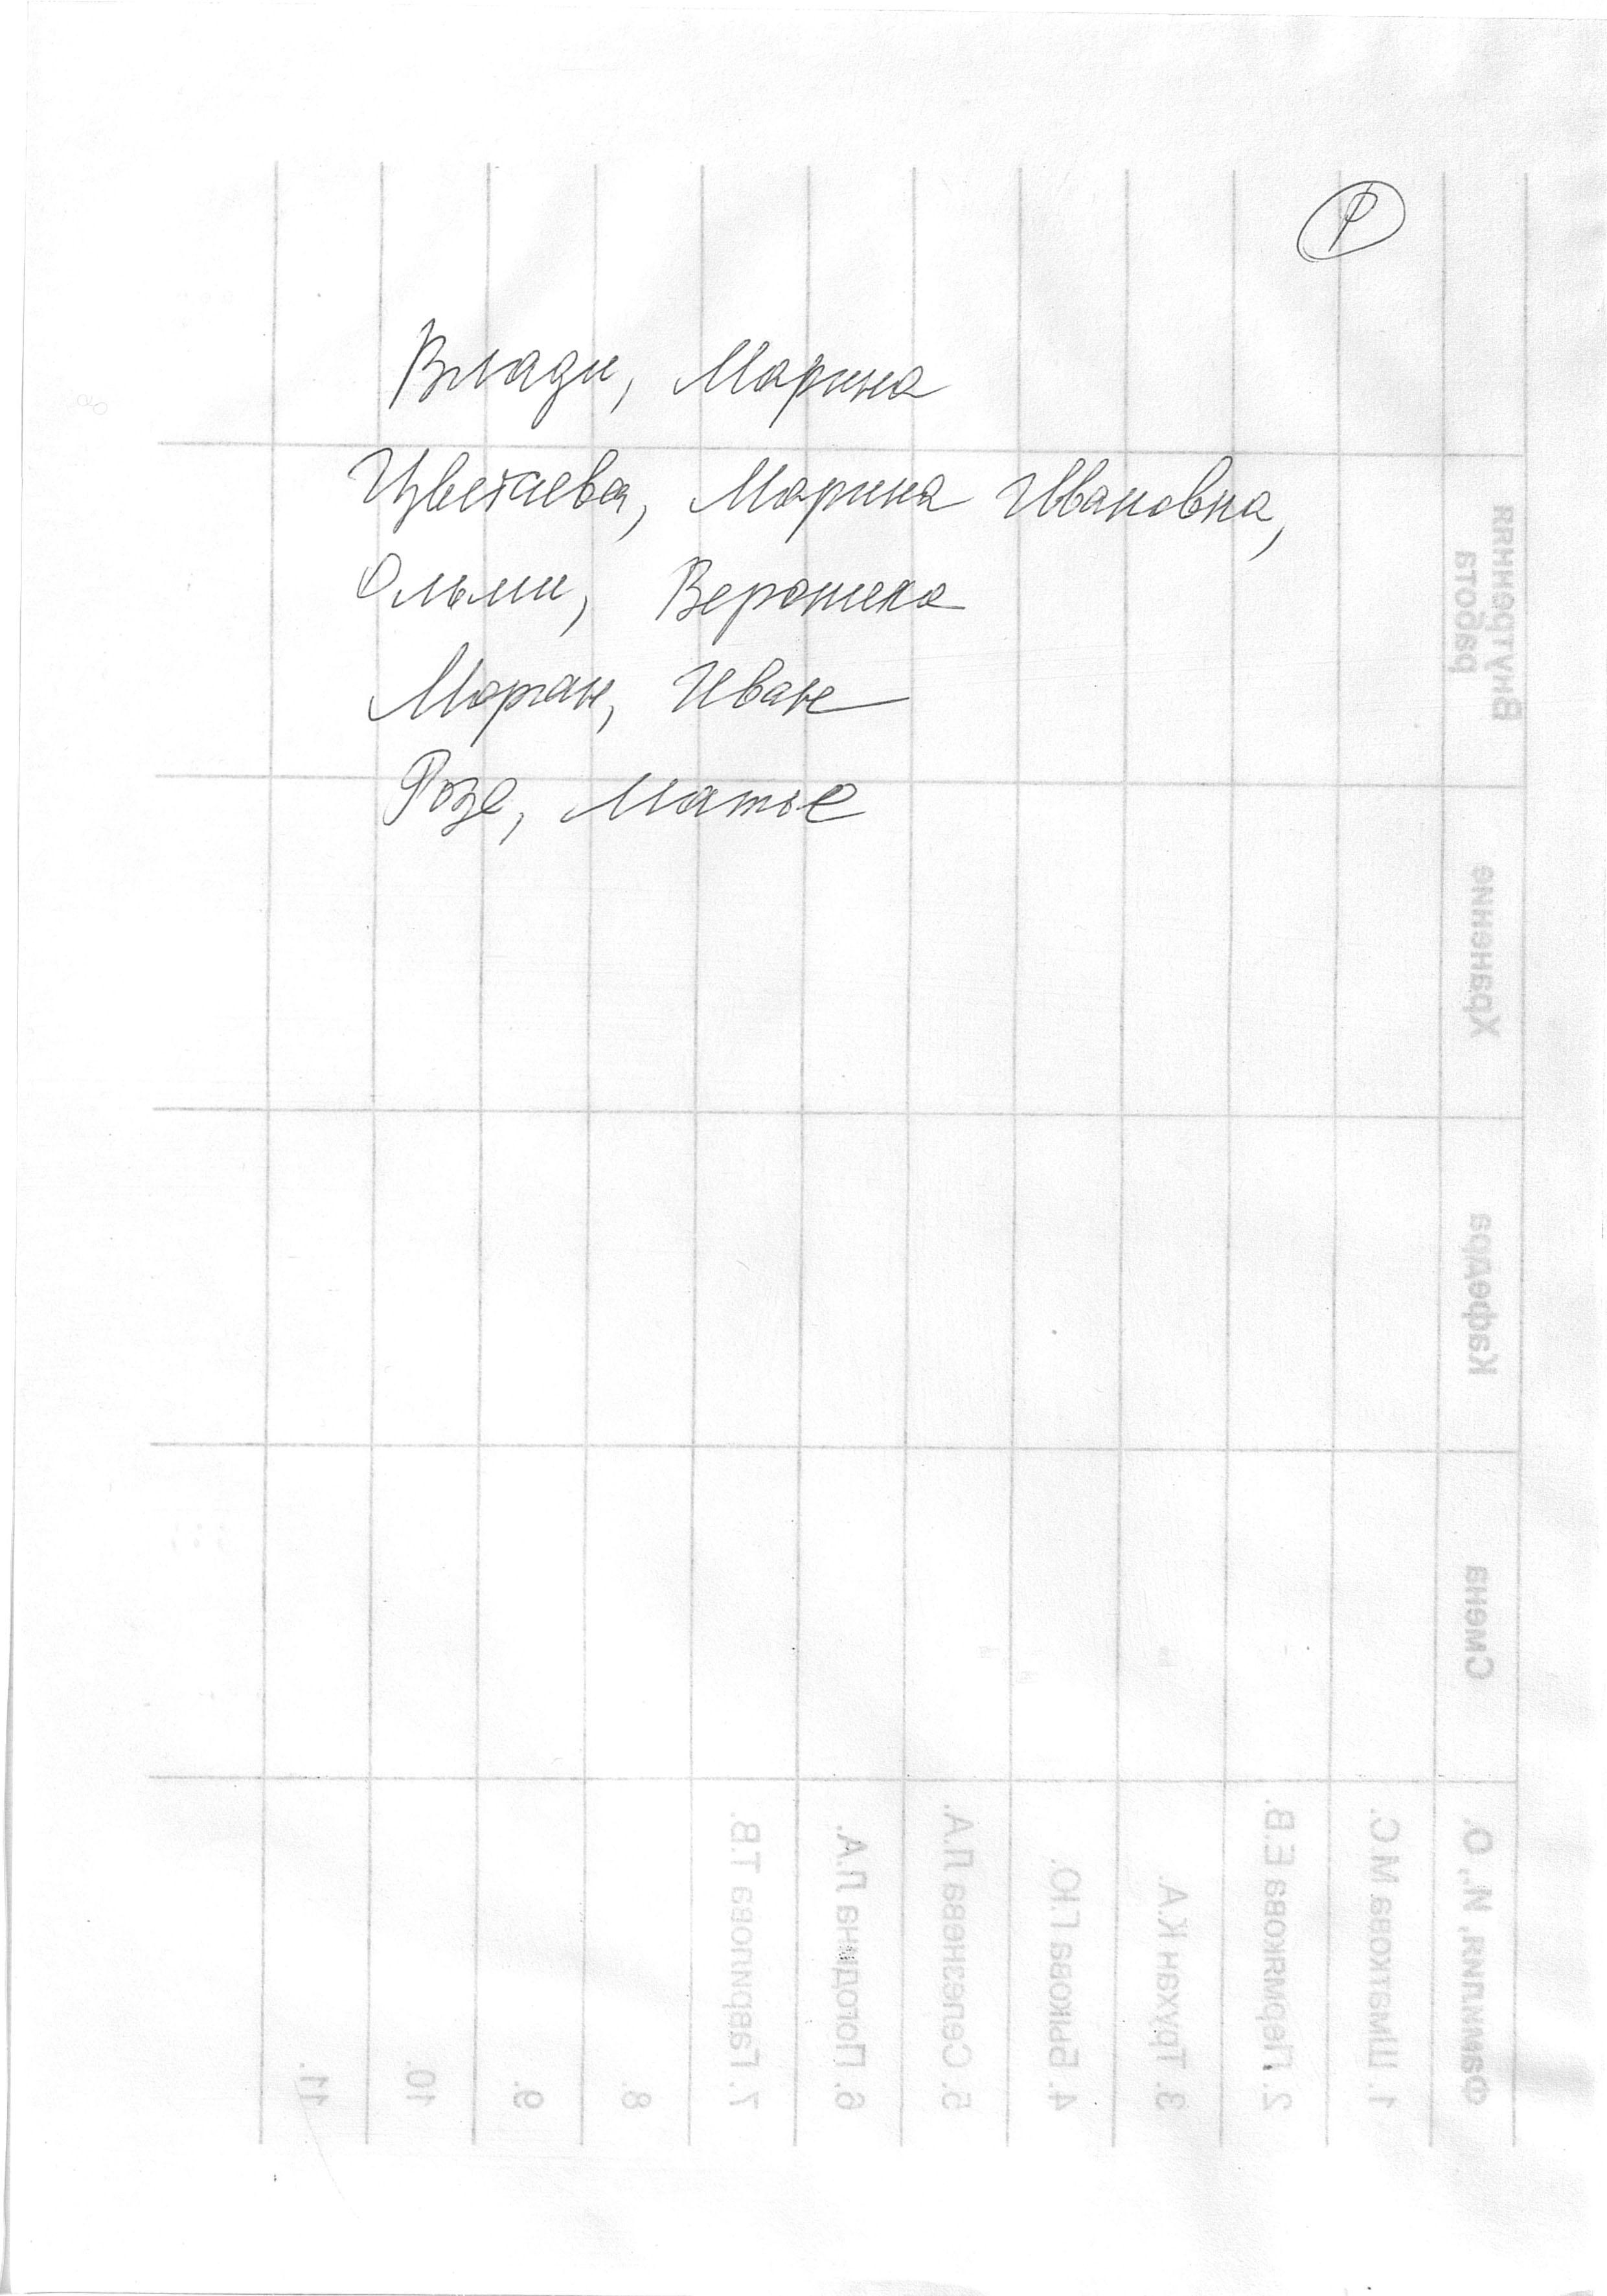 Р
Влади, Марина
Цветаева, Марина Ивановна,
Ольми, Вероника
Моран, Иван
Розе, Матье
Внутренняя
работа
Хранение
Кафедра
Смена
Фамилия, И., О.
1. Шматкова М.С.
2. Пермякова Е.В.
3. Трухан К.А.
4. Быкова Г.Ю.
5. Селезнева Л.А.
6. Погодина Л.А.
7. Гаврилова Т.В.
8.
9.
10.
11.